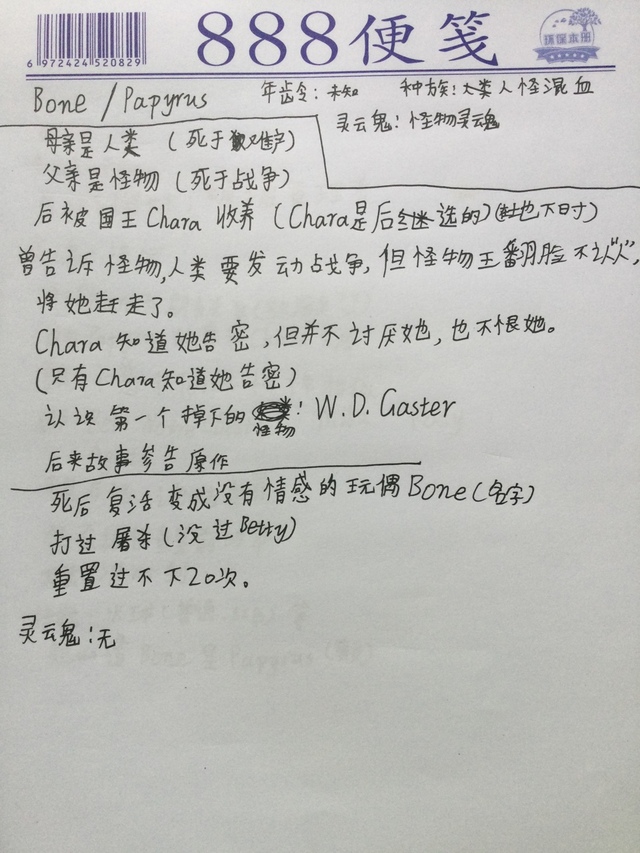 6 972424 520829
888便笺
环保本册
Bone / Papyrus 年龄: 未知 种族: 人怪混血
灵魂: 怪物灵魂
母亲是人类 (死于难产)
父亲是怪物 (死于战争)
后被国王Chara收养 (Chara是后选的)(也不时)
曾告诉怪物,人类要发动战争,但怪物王翻脸不认“人”,
将她赶走了。
Chara知道她告密,但并不讨厌她,也不恨她。
(只有Chara知道她告密)
认识第一个掉下的怪物: W.D.Gaster
后来故事参告原作
死后复活变成没有情感的玩偶Bone(名字)
打过屠杀(没过Betty)
重置过不下20次。
灵魂:无